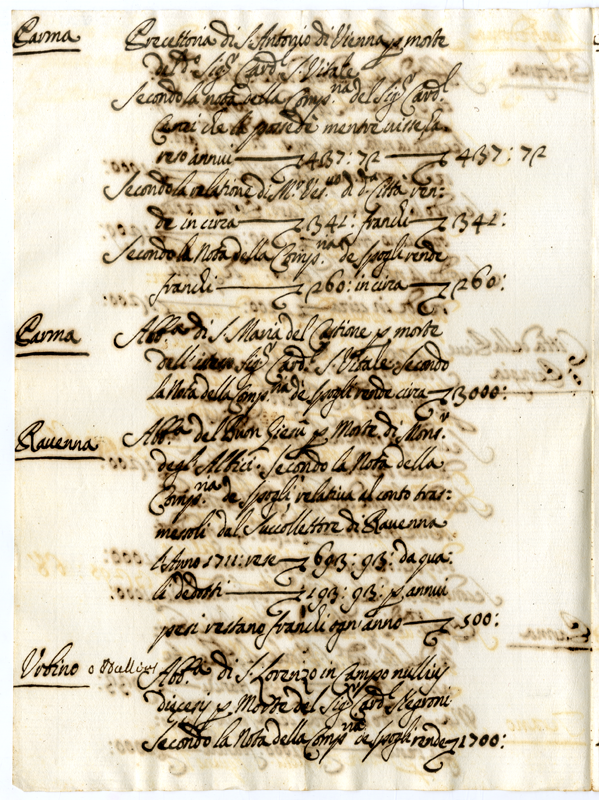 Parma Precettoria di S. Antonio di Vienna p morte
del d.o Sig.r Card.l S. Vitale
Secondo la nota della Comp.ria del Sig.r Card.l
Cenci che la possedè mentre visse ha
reso annui 437: 72 437: 72
Secondo la relatione di M.r Ves.vo di d.a Città ren:
de in circa 341: franchi 341:
Secondo la Nota della Comp.ria de spogli rende
franchi 260: in circa 260:
Parma Abb.a di S. Maria del Castione p morte
dell' istesso Sig.r Card.l S. Vitale secondo
la Nota della Comp.ria de spogli rende circa 3000:
Ravenna Abb.a del Buon Giesù p Morte di Mons.r
degli Albici. Secondo la Nota della
Comp.ria de spogli relativa al conto tras:
messoli dal Succollettore di Ravenna
l'Anno 1711: rese 693: 93: da qua:
li dedotti 193: 93: p annui
pesi restano franchi ogn'anno 500:
Urbino o Nullius Abb.a di S. Lorenzo in Campo nullius
diecesis p Morte del Sig.r Card.l Negroni
Secondo la Nota della Comp.ria de spogli rende 1700: